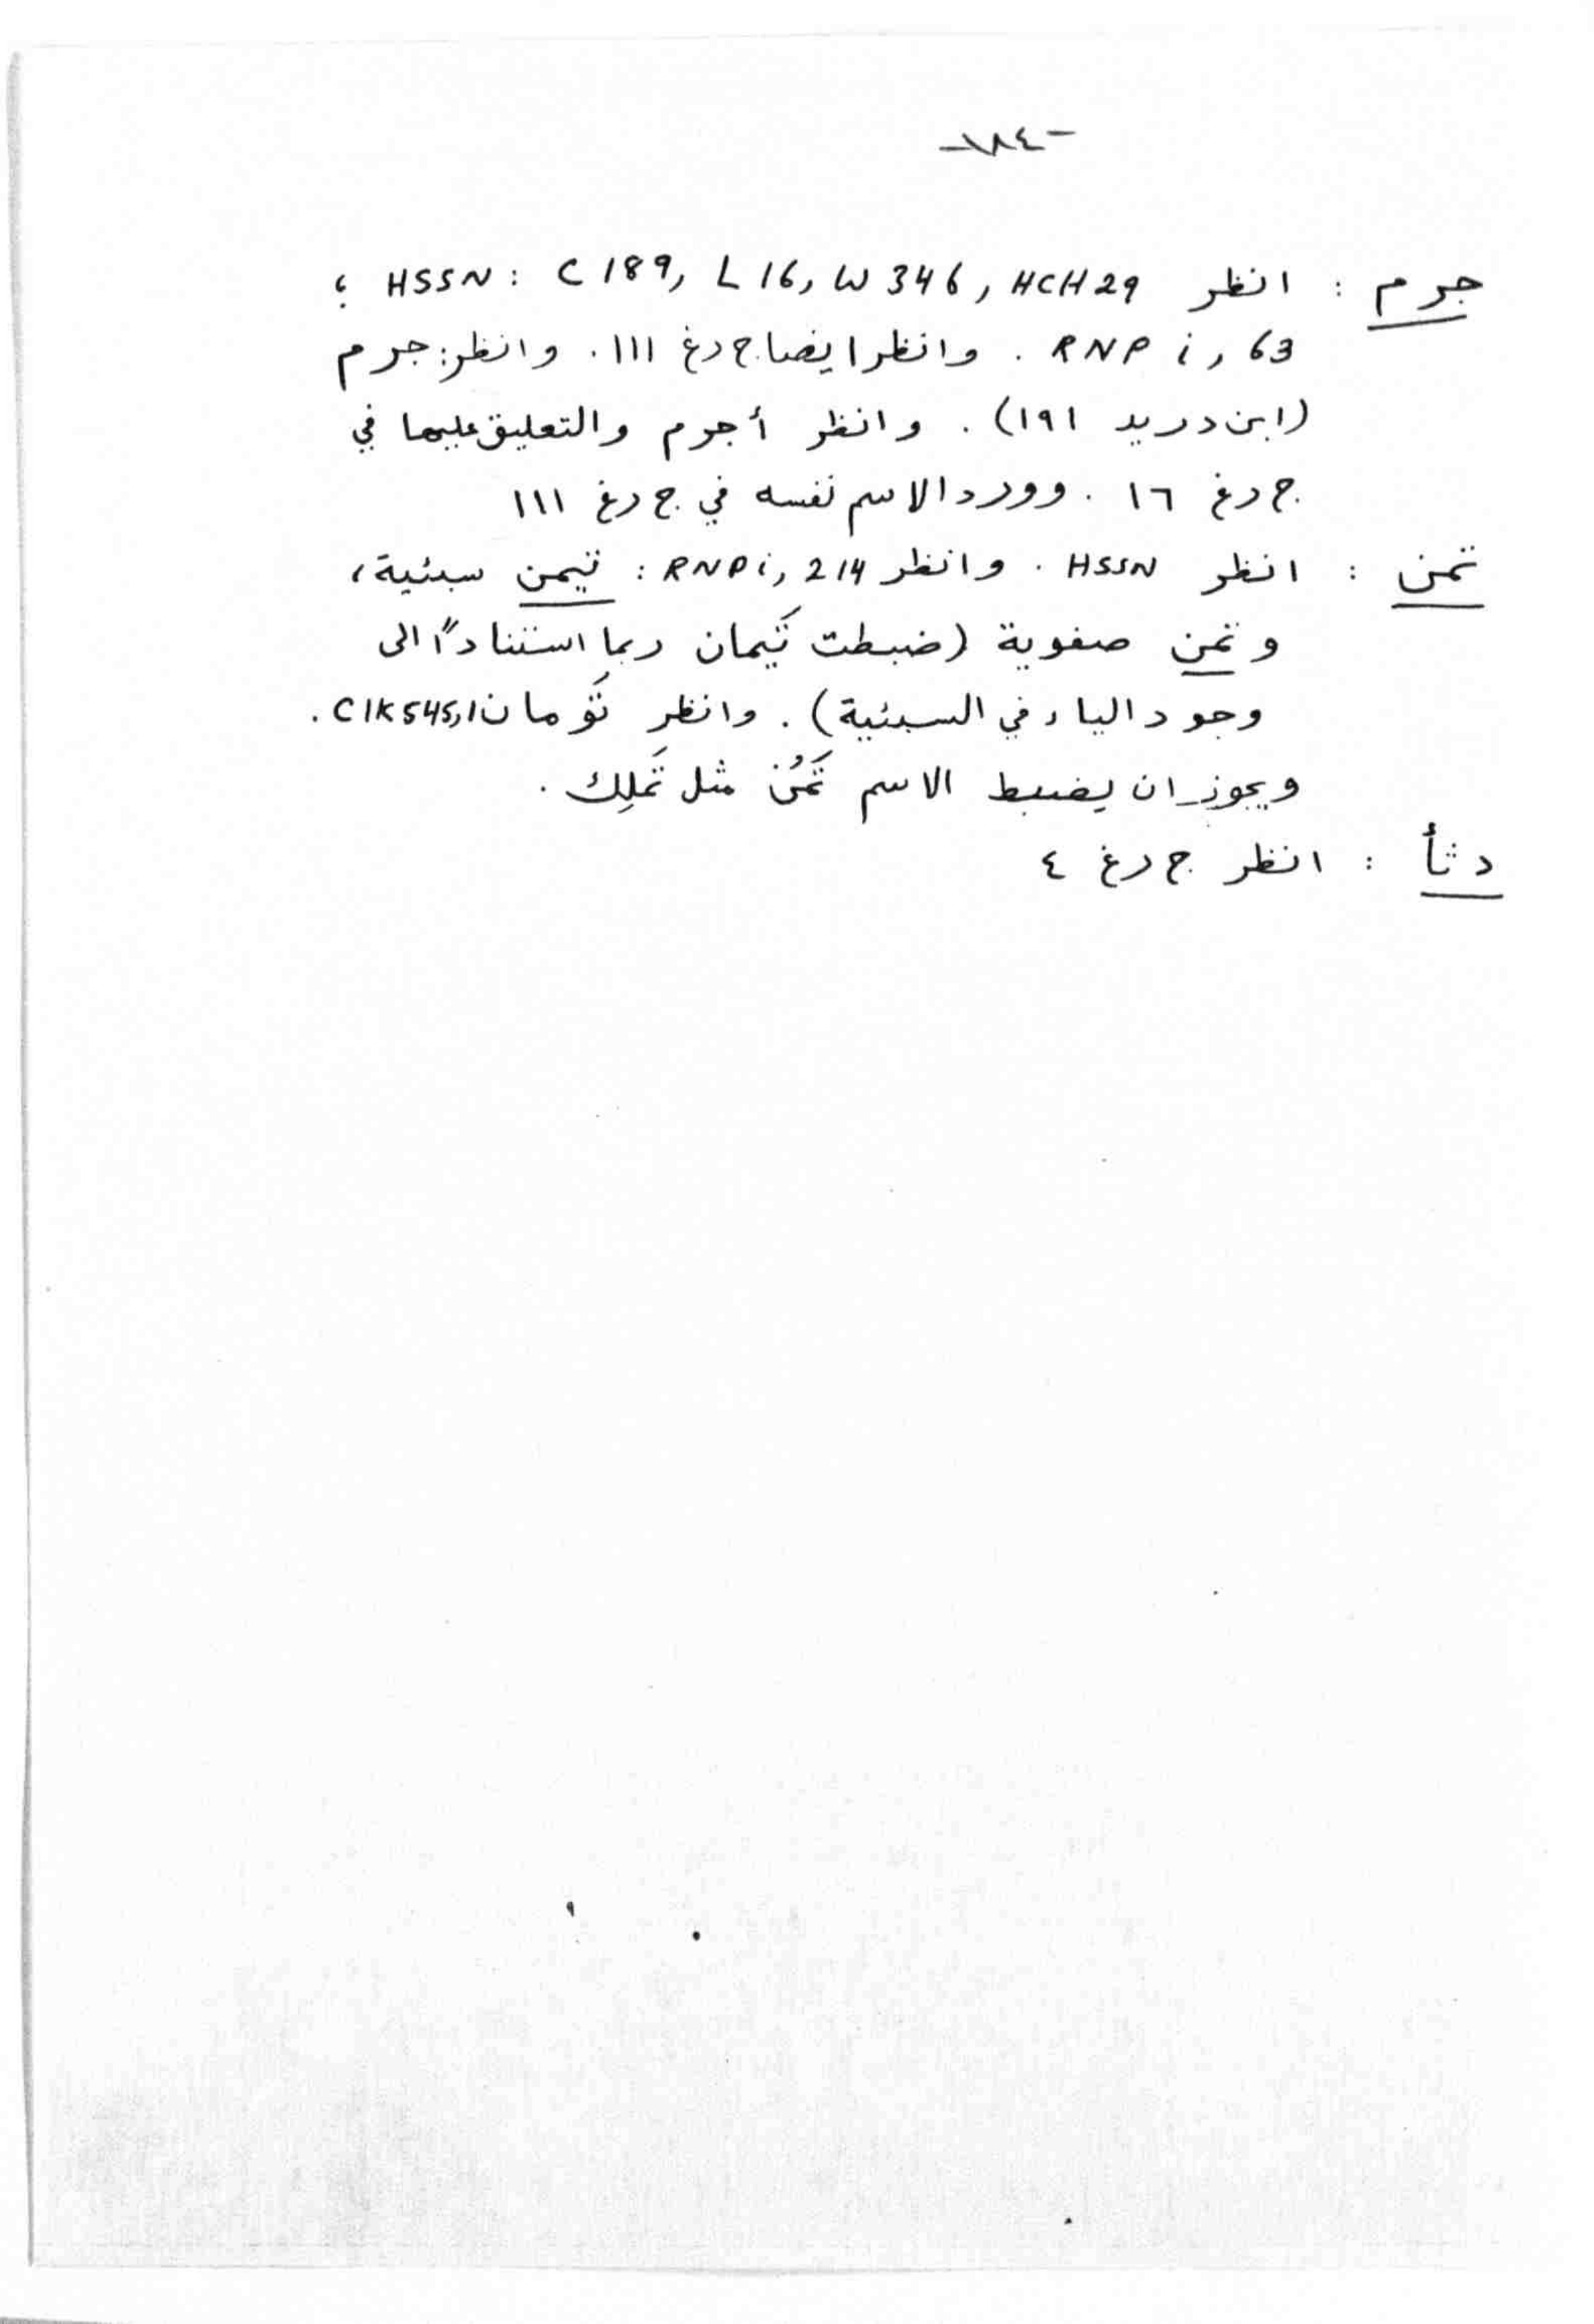 -١٨٤-
جرم : انظر HSSN : C 189, L 16, W 346, HCH 29 ؛
RNP i, 63 . وانظر ايضا ج رغ ١١١ . وانظر : جرم
(ابن دريد ١٩١) . وانظر أجرم والتعليق عليها في
ج رغ ١٦ . وورد الاسم نفسه في ج رغ ١١١
تمن : انظر HSSN . وانظر RNP i, 214 : تيمن سبئية ،
و تمن صفوية (ضبطت تَيمان ربما استنادًا الى
وجود الياء في السبئية) . وانظر تَومان CIK 545,1 .
ويجوز ان يضبط الاسم تَمُن مثل تَملِك .
دثأ : انظر ج رغ ٤